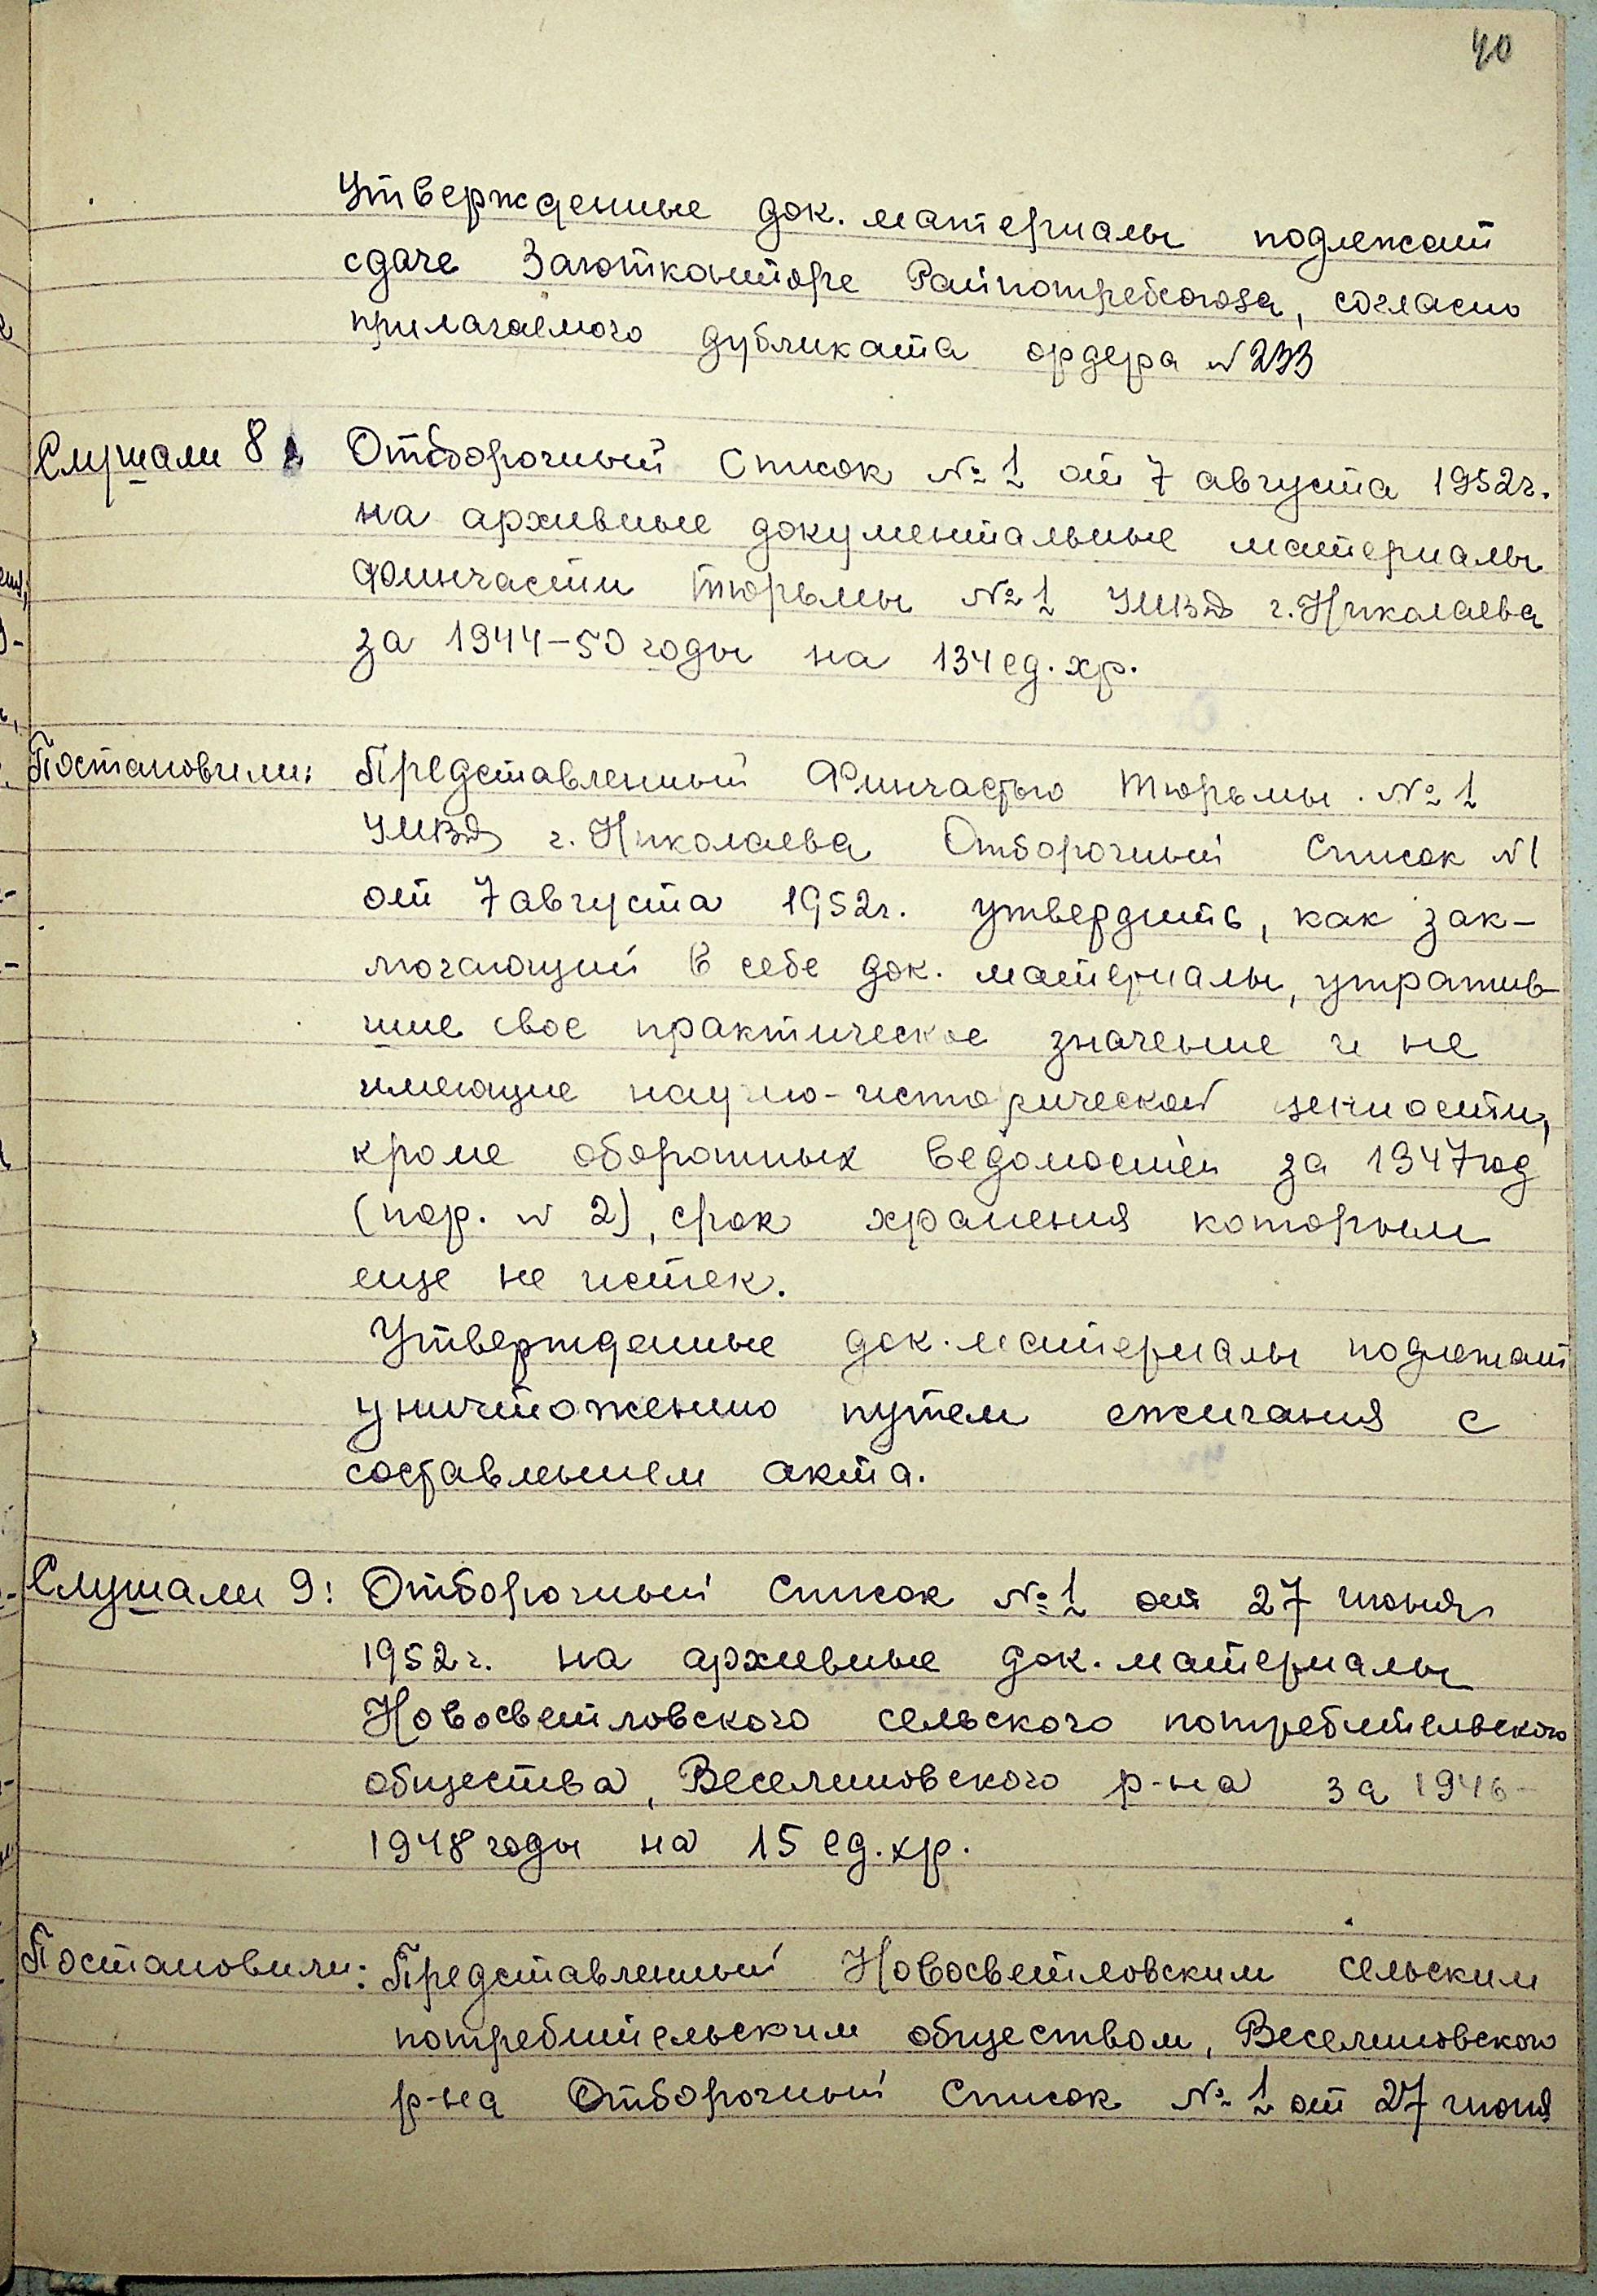 40
Утвержденные док. материалы подлежат
сдаче Заготконторе Райпотребсоюза, согласно
прилагаемого дубликата ордера № 233
Слушали 8: Отборочный список № 1 от 7 августа 1952г.
на архивные документальные материалы
Финчасти тюрьмы № 1 УМВД г. Николаева
за 1944-50 годы на 134 ед. хр.
Постановили: Представленный Финчастью тюрьмы № 1
УМВД г. Николаева Отборочный список № 1
от 7 августа 1952г. утвердить, как зак-
лючающий в себе док. материалы, утратив-
шие свое практическое значение и не
имеющие научно-исторической ценности,
кроме оборотных ведомостей за 1947 год
(пор. № 2), срок хранения которым
еще не истек.
Утвержденные док. материалы подлежат
уничтожению путем сжигания с
составлением акта.
Слушали 9: Отборочный список № 1 от 27 июня
1952г. на архивные док. материалы
Новосветловского сельского потребительского
общества, Веселиновского р-на за 1946-
1948 годы на 15 ед. хр.
Постановили: Представленный Новосветловским сельским
потребительским обществом, Веселиновского
р-на Отборочный список № 1 от 27 июня